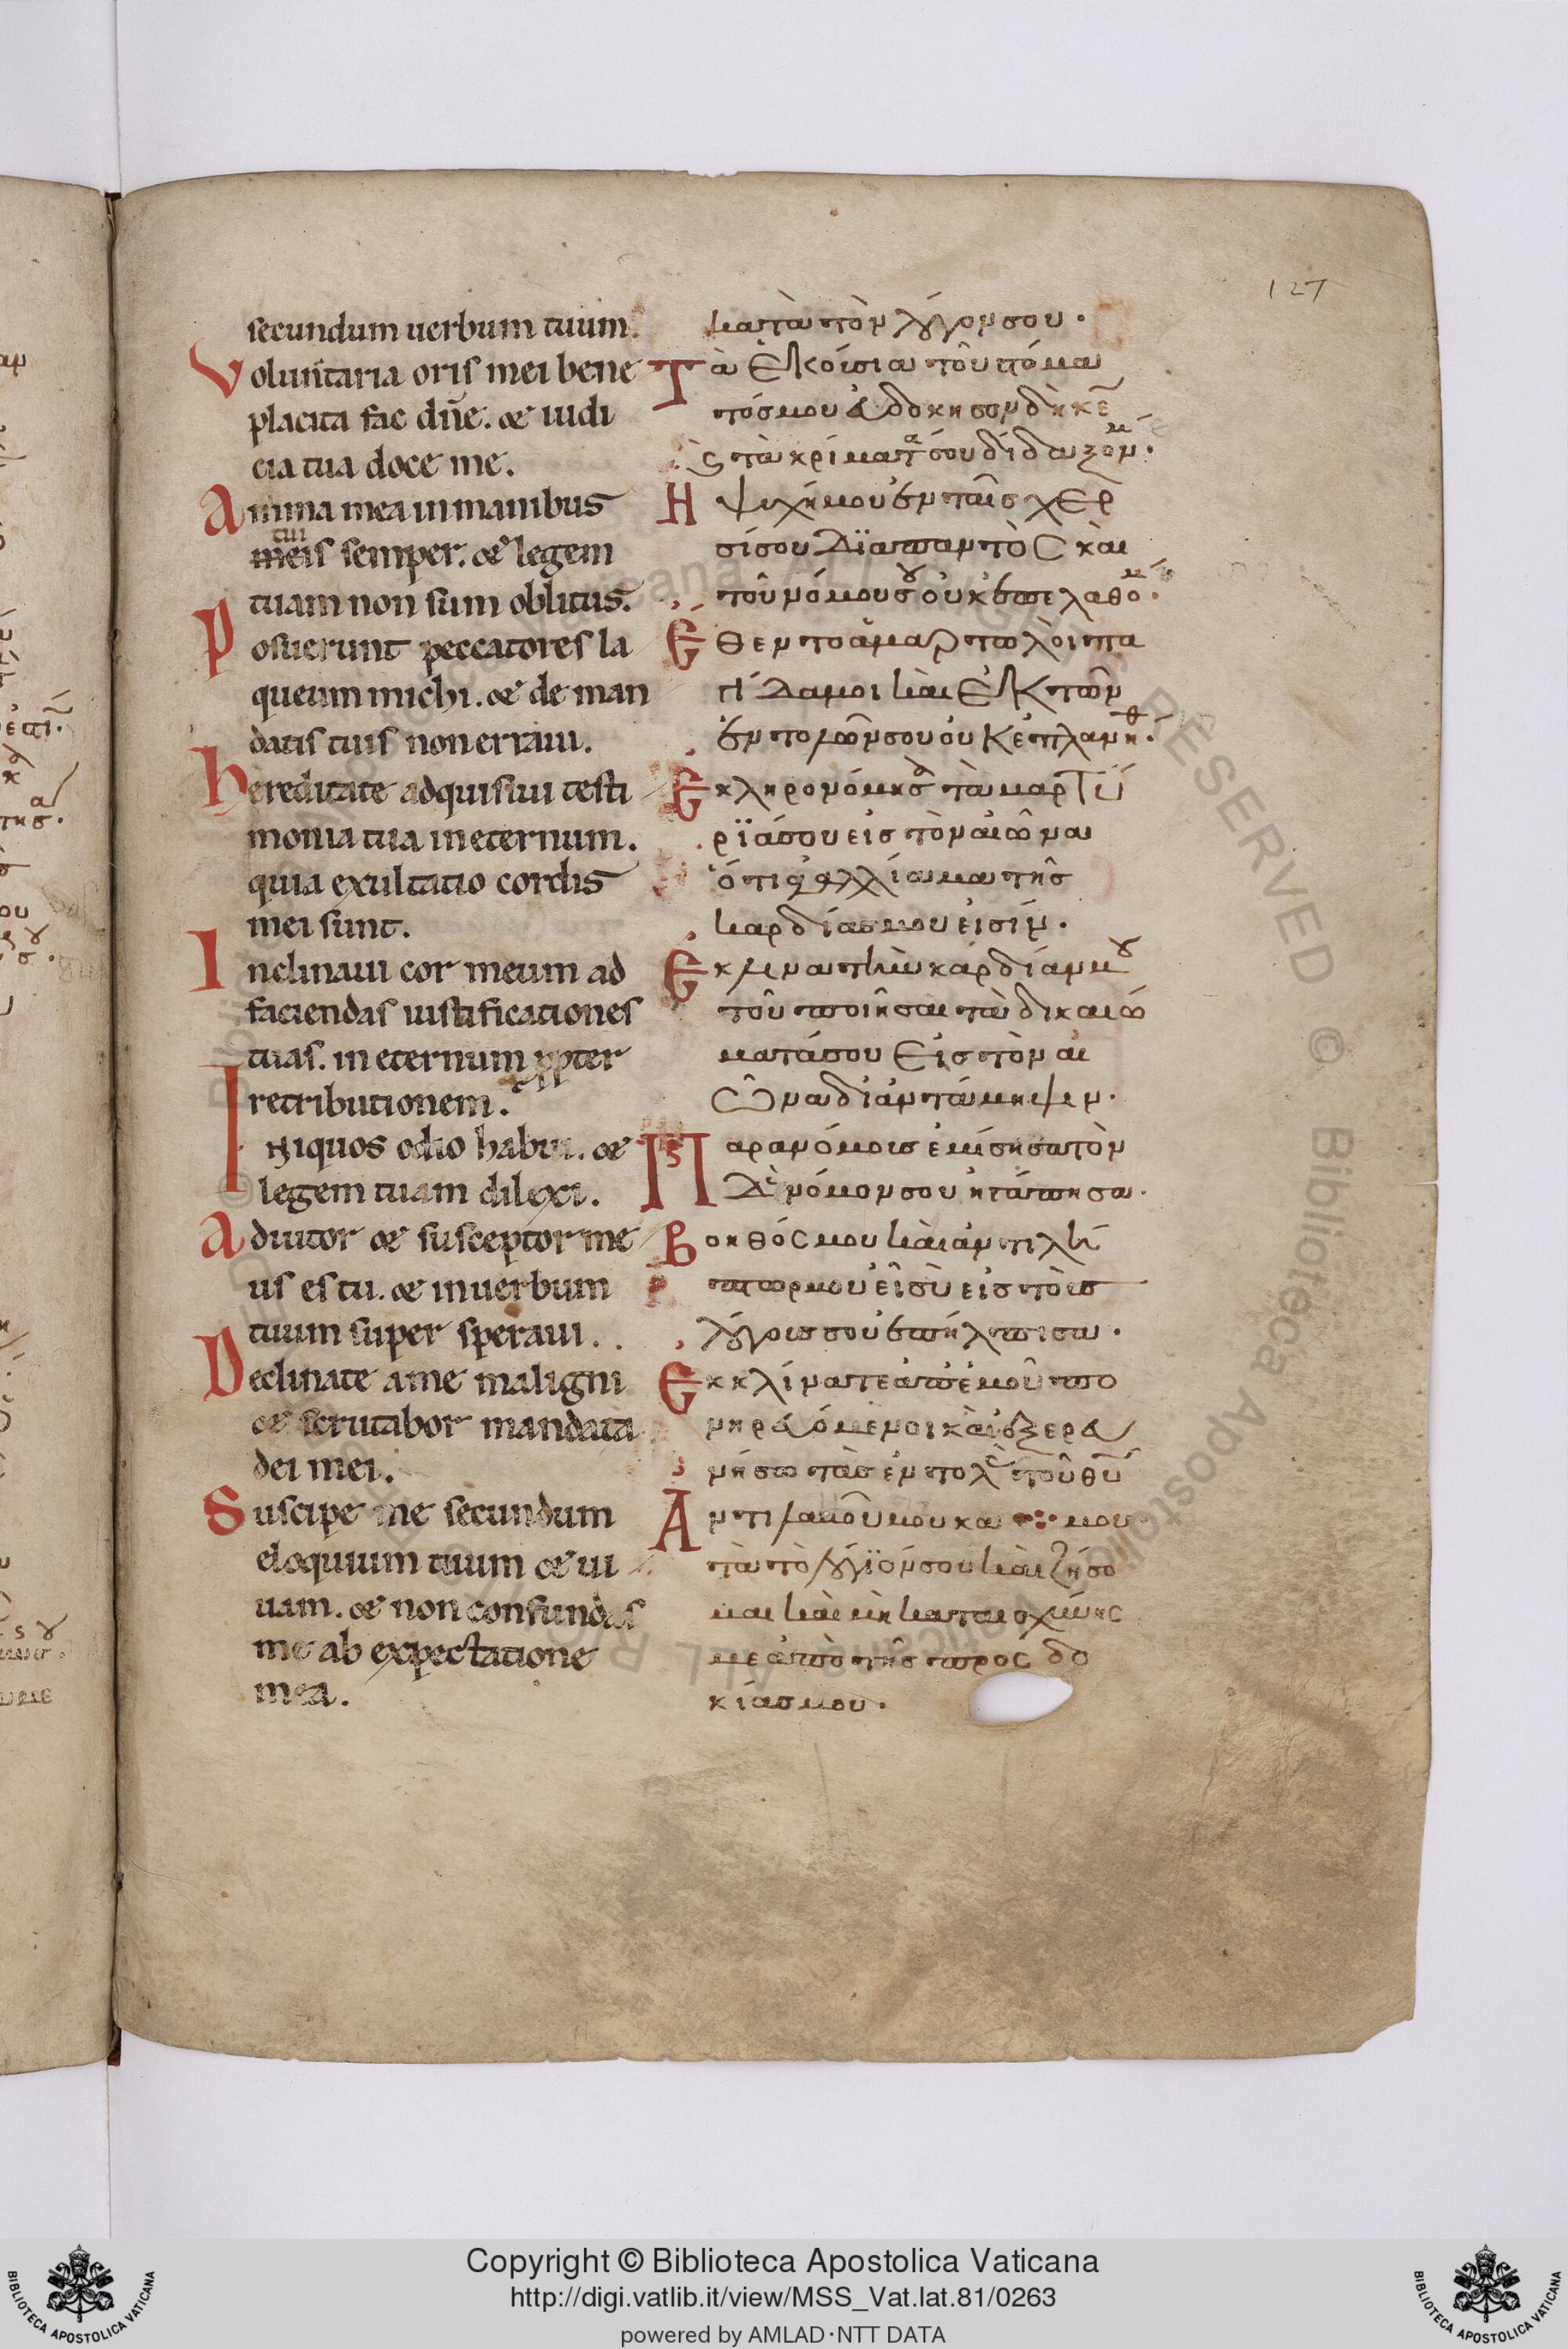 127
secundum uerbum tuum.
Voluntaria oris mei bene
placita fac dñe. & iudi
cia tua doce me.
Anima mea in manibus
tui
meis semper. & legem
tuam non sum oblitus.
Posuerunt peccatores la
queum michi. & de man
datis tuis non erraui.
Hereditate adquisiui testi
monia tua in eternum.
quia exultatio cordis
mei sunt.
Inclinaui cor meum ad
faciendas iustificationes
tuas. in eternum ppter
retributionem.
Iniquos odio habui. &
legem tuam dilexi.
Adiutor & susceptor me
us es tu. & in uerbum
tuum super speraui.
Declinate a me maligni
& scrutabor mandata
dei mei.
Suscipe me secundum
eloquium tuum & ui
uam. & non confundas
me ab expectatione
mea.
κατὰ τὸν λόγον σου.
Τὰ ἑκούσια τοῦ στόμα
Ἡ ψυχή μου ἐν ταῖς χερ
σί σου διαπαντὸς και
τοῦ νόμου σου οὐκ ἐπελαθόμ.
Ἔθεντο ἁμαρτωλὸι πα
γίδα μοι καὶ ἐκ τῶν
ἐντολῶν σου οὐκ ἐπλανήθ.
Ἐκληρονόμησα τὰ μαρτύ
ρϊά σου εἰς τὸν αἰῶνα
ὅτι ἀγαλλίαμα τῆς
καρδίας μου εἰσίν.
Ἔκλινα τὴν καρδίαν μου
τοῦ ποιῆσαι τὰ δικαιώ
ματά σου εἰς τὸν αἰ
ῶνα δι ἀντάμηψιν.
Παρανόμοις ἐμίσησα τὸν
δὲ νόμον σου ἠγάπησα.
Βοηθός μου καὶ ἀντιλή
πτωρ μου εἶ σὺ εἰς τὸις
λόγοις σου ἐπήλπισα.
Ἐκκλίνατε ἀπ ἐμοῦ πο
νηρευόμενοι καὶ ἐξερευ
νήσω τὰς ἐντολὰς τοῦ θυ
Ἀντιλαβοῦ μου κα μου
τὰ τὸ λόγϊόν σου καὶ ζήσο
μαι καὶ μὴ καταισχύνης
με ἀπὸ τῆς προς δο
κίας μου.
Copyright © Biblioteca Apostolica Vaticana
http://digi.vatlib.it/view/MSS_Vat.lat.81/0263
powered by AMLAD·NTT DATA
BIBLIOTECA APOSTOLICA VATICANA
BIBLIOTECA APOSTOLICA VATICANA